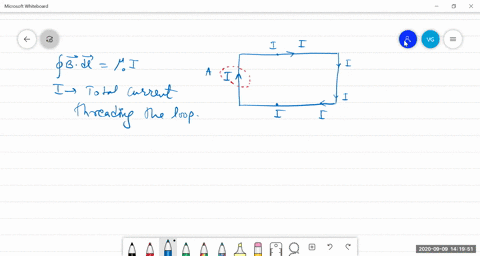 Microsoft Whiteboard
VG
∮B⃗·d⃗l = μ₀ I
I → Total current
threading the loop.
A
I
I I
I
I
I I
2020-09-09 14:19:51